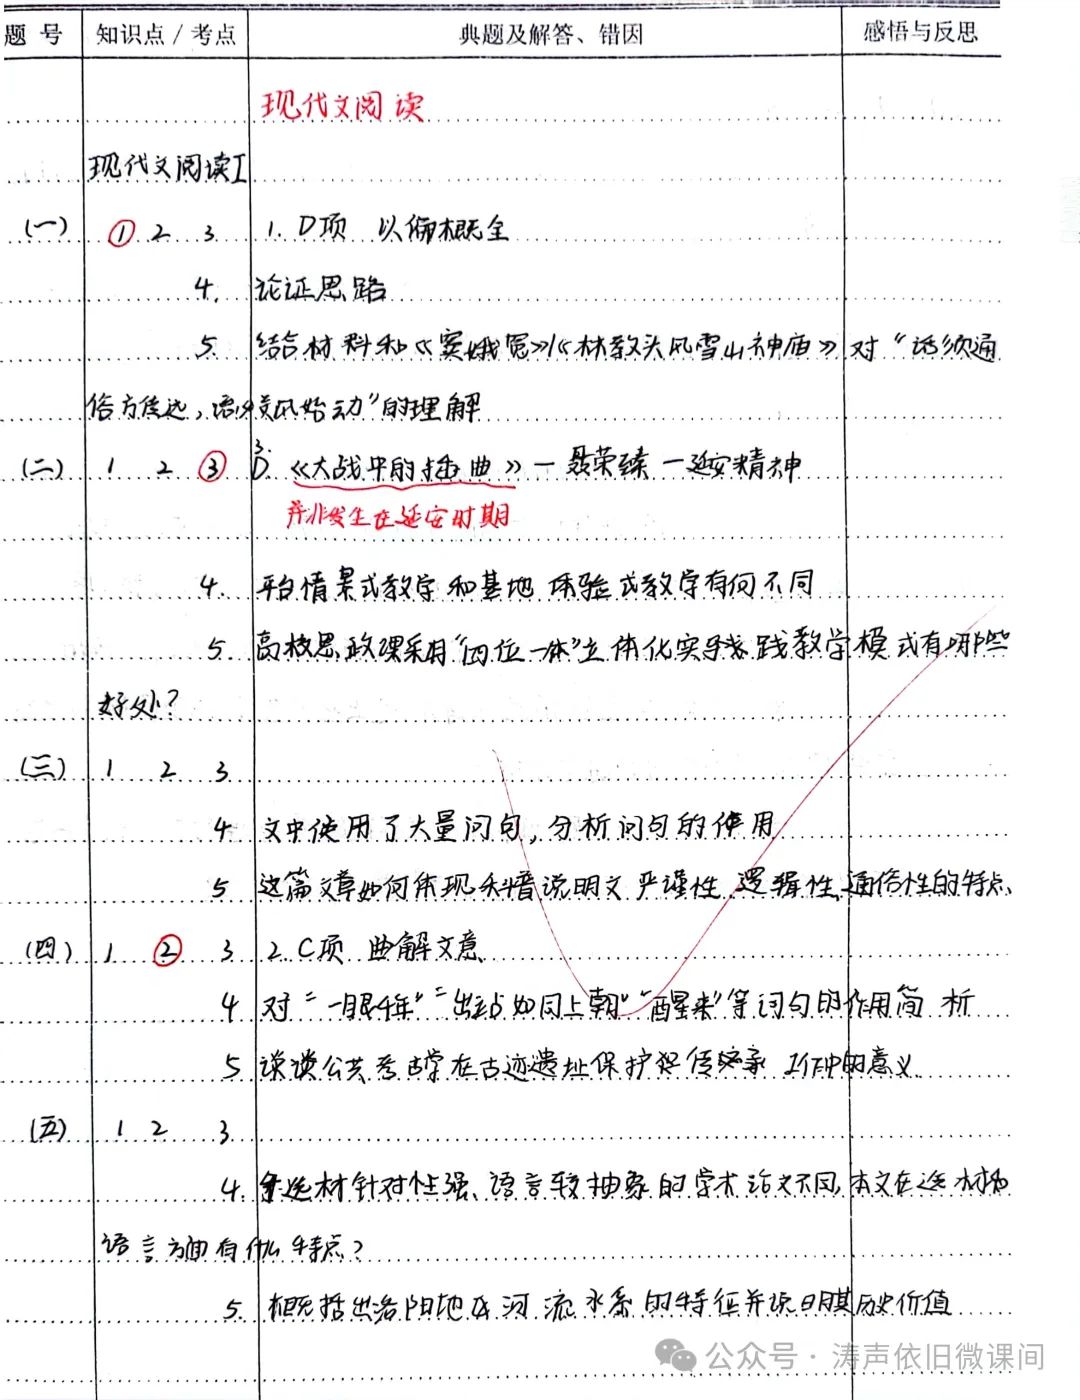 题号 知识点/考点 典题及解答、错因 感悟与反思
现代文阅读
现代文阅读I
(一) ① 2 3 1. D项 以偏概全
4. 论证思路
5. 结合材料和《窦娥冤》/《林教头风雪山神庙》对“话须通
俗方传远,语必关风始动”的理解
(二) 1 2 ③ 3. D. 《大战中的插曲》—聂荣臻—延安精神
并非发生在延安时期
4. 平台情景式教学和基地体验式教学有何不同
5. 高校思政课采用“四位一体”立体化实践教学模式有哪些
好处?
(三) 1 2 3
4 文中使用了大量问句,分析问句的使用
5 这篇文章如何体现科普说明文严谨性、逻辑性、通俗性的特点
(四) 1 ② 3 2. C项 曲解文意
4 对“一眼千年”“出站如同上朝”“醒来”等词句的作用简析
5 谈谈公共考古学在古迹遗址保护和传承工作中的意义
(五) 1 2 3
4. 与选材针对性强、语言较抽象的学术论文不同,本文在选材和
语言方面有什么特点?
5. 概括出洛阳地区河流水系的特征并说明其历史价值
公众号·涛声依旧微课间